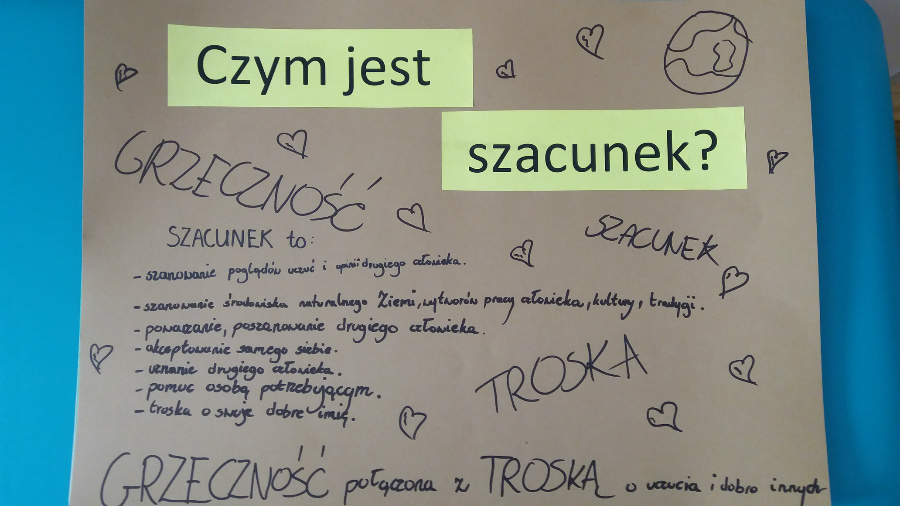 Czym jest
szacunek?
GRZECZNOŚĆ
SZACUNEK
SZACUNEK to:
- szanowanie poglądów uczuć i opinii drugiego człowieka.
- szanowanie środowiska naturalnego Ziemi, wytworów pracy człowieka, kultury, tradycji.
- poważanie, poszanowanie drugiego człowieka.
- akceptowanie samego siebie.
- uznanie drugiego człowieka.
- pomoc osobą potrzebującym.
- troska o swoje dobre imię.
TROSKA
GRZECZNOŚĆ połączona z TROSKĄ o uczucia i dobro innych